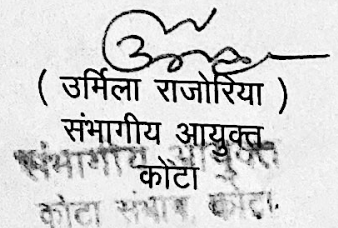 ( उर्मिला राजोरिया )
संभागीय आयुक्त
कोटा
संभागीय आयुक्त
कोटा संभाग, कोटा.